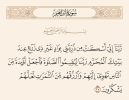 سورة إبراهيم
رَّبَّنَا إِنِّي أَسْكَنتُ مِن ذُرِّيَّتِي بِوَادٍ غَيْرِ ذِي زَرْعٍ عِندَ
بَيْتِكَ الْمُحَرَّمِ رَبَّنَا لِيُقِيمُوا الصَّلَاةَ فَاجْعَلْ أَفْئِدَةً مِّنَ
النَّاسِ تَهْوِي إِلَيْهِمْ وَارْزُقْهُم مِّنَ الثَّمَرَاتِ لَعَلَّهُمْ
يَشْكُرُونَ